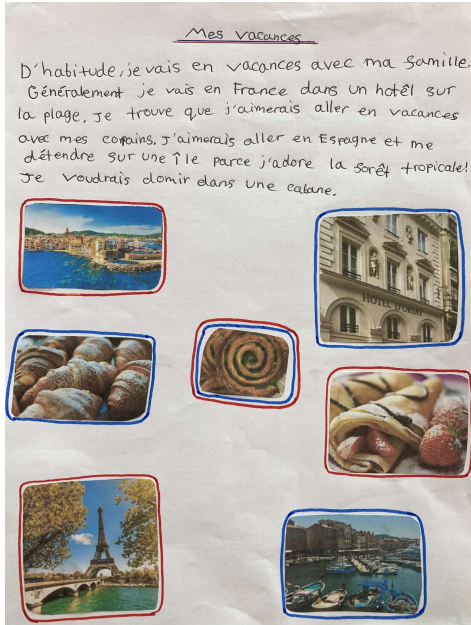 Mes vacances
D'habitude, je vais en vacances avec ma famille.
Généralement je vais en France dans un hotêl sur
la plage. Je trouve que j'aimerais aller en vacances
avec mes copains. J'aimerais aller en Espagne et me
détendre sur une île parce j'adore la forêt tropicale!
Je voudrais domir dans une cabane.
HOTEL D'ORSAY